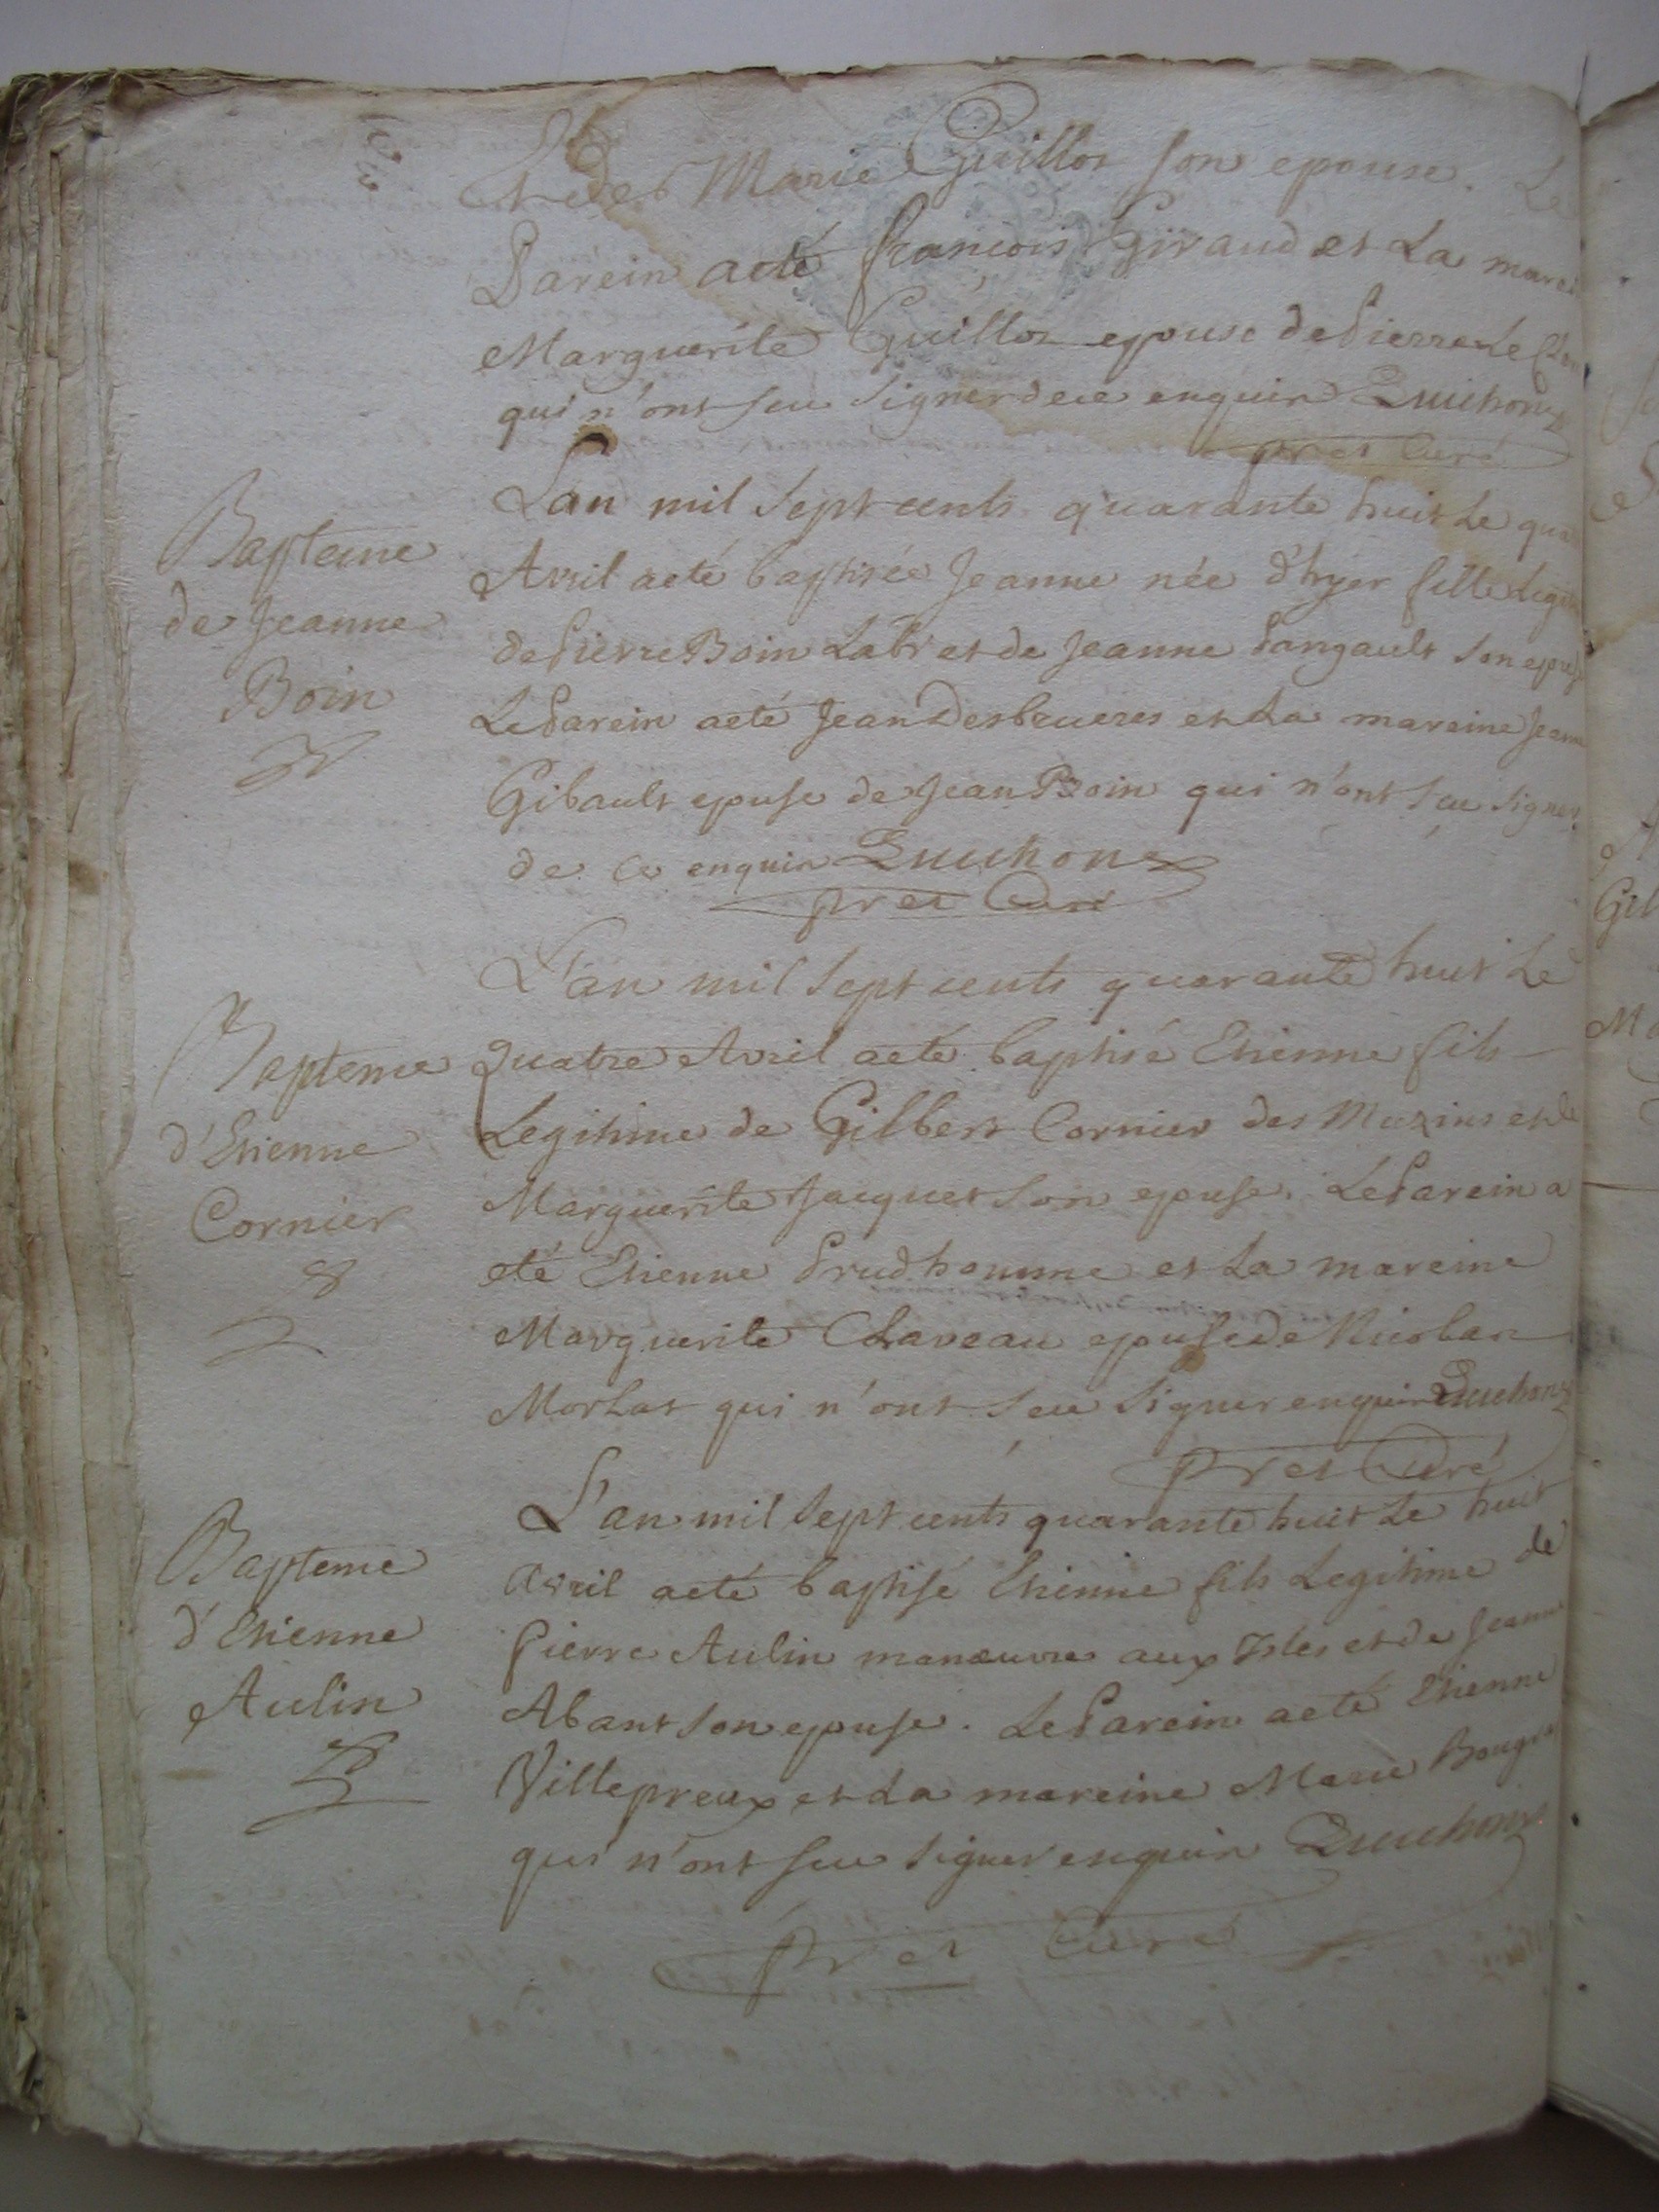 et de Marie Guillot son epouse. Le
Parein a eté françois Giraud et La marei
Marguerite Guillot epouse de Pierre Le
qui n'ont seu signer de ce enquis
pret Curé
Bapteme
de Jeanne
Boin
Lan mil Sept cents quarante huit Le qua
Avril a eté baptisée Jeanne née d'hyer fille Legit
de Pierre Boin Labr et de Jeanne Pangault son epouse
Le Parein a eté Jean Desbrueres et La mareine Jeanne
Gibault epouse de Jean Boin qui n'ont seu signer
de ce enquis
pret Curé
Bapteme
d'Etienne
Cornier
L'an mil Sept cents quarante huit Le
quatre Avril a eté baptisé Etienne fils
Legitime de Gilbert Cornier des Mazins et de
Marguerite Jacquet son epouse. Le Parein a
eté Etienne Prudhomme et La mareine
Marguerite Claveau epouse de Nicolas
Morlat qui n'ont seu signer enquis
pret Curé
Bapteme
d'Etienne
Aulin
L'an mil Sept cents quarante huit Le huit
avril a eté baptisé Etienne fils Legitime de
Pierre Aulin manœuvre aux Isles et de Jeanne
Abant son epouse. Le Parein a eté Etienne
Villepreux et La mareine Marie
qui n'ont seu signer enquis
pret Curé